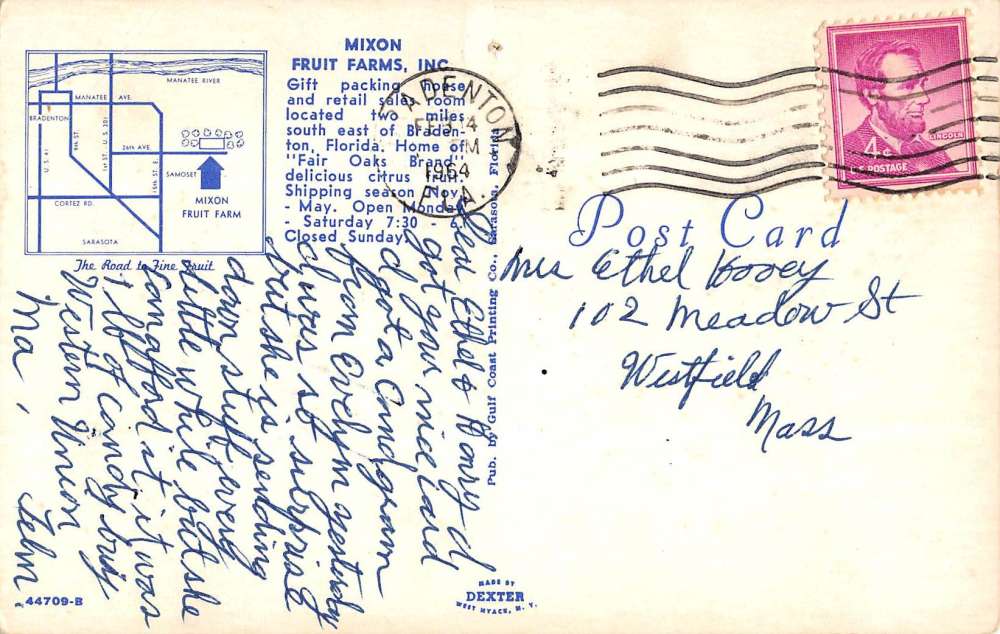 MIXON
FRUIT FARMS, INC.
Gift packing house
and retail sales room
located two miles
south east of Braden-
ton, Florida. Home of
"Fair Oaks Brand"
delicious citrus fruit.
Shipping season Nov.
- May. Open Monday
- Saturday 7:30 - 6.
Closed Sunday.
MANATEE RIVER
MANATEE AVE.
BRADENTON
U.S. 41
9th ST.
1st ST. U.S. 301
26th AVE.
15th ST. E.
SAMOSET
MIXON
FRUIT FARM
CORTEZ RD.
SARASOTA
The Road to Fine Fruit
BRADENTON
FEB 14
PM
1964
FLA.
LINCOLN
4¢
U.S. POSTAGE
Post Card
Mrs Ethel Hovey
102 Meadow St
Westfield
Mass
Dear Ethel &
got your nice card
d got a Candygram
from Evelyn yesterday
d was so surprised
but she is sending
darn stuff every
little while but she
can afford it, it was
1 lb of candy by
Western Union
Ma,
Pub. by Gulf Coast Printing Co., Sarasota, Florida
MADE BY
DEXTER
WEST NYACK, N. Y.
44709-B